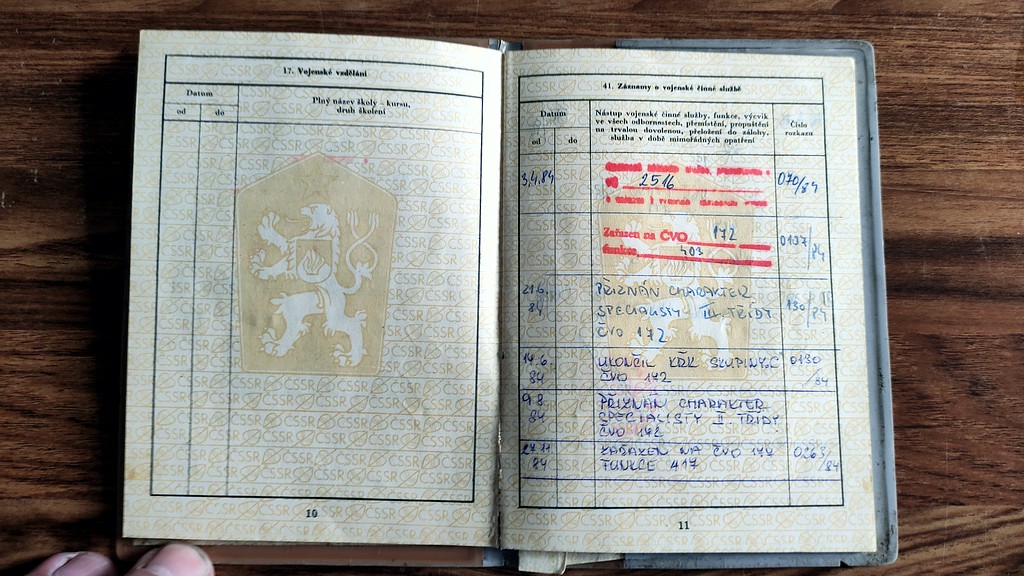 17. Vojenské vzdělání
Datum
od
do
Plný název školy - kursu,
druh školení
10
41. Záznamy o vojenské činné službě
Datum
od
do
Nástup vojenské činné služby, funkce, výcvik
ve všech odbornostech, přemístění, propuštění
na trvalou dovolenou, přeložení do zálohy,
služba v době mimořádných opatření
Číslo
rozkazu
3.4.84
2516
070/84
Zařazen na ČVO 172
funkce 403
0107/84
21.6.
84
PŘIZNÁN CHARAKTER
SPECIALISTY III. TŘÍDY
ČVO 172
130/84
14.6.
84
UKONČIL KŘK SKUPINY C
ČVO 172
0130
/84
9.8.
84
PŘIZNÁN CHARAKTER
SPECIALISTY II. TŘÍDY
ČVO 172
84
ZAŘAZEN NA ČVO 172
FUNKCE 417
0263
/84
11